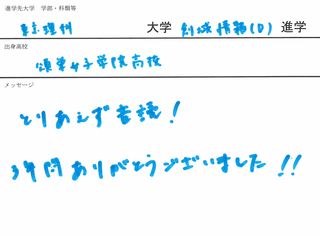 進学先大学　学部・科類等
東京理科 大学 創域情報(D) 進学
出身高校
頌栄女子学院高校
メッセージ
とりあえず音読！
3年間ありがとうございました!!